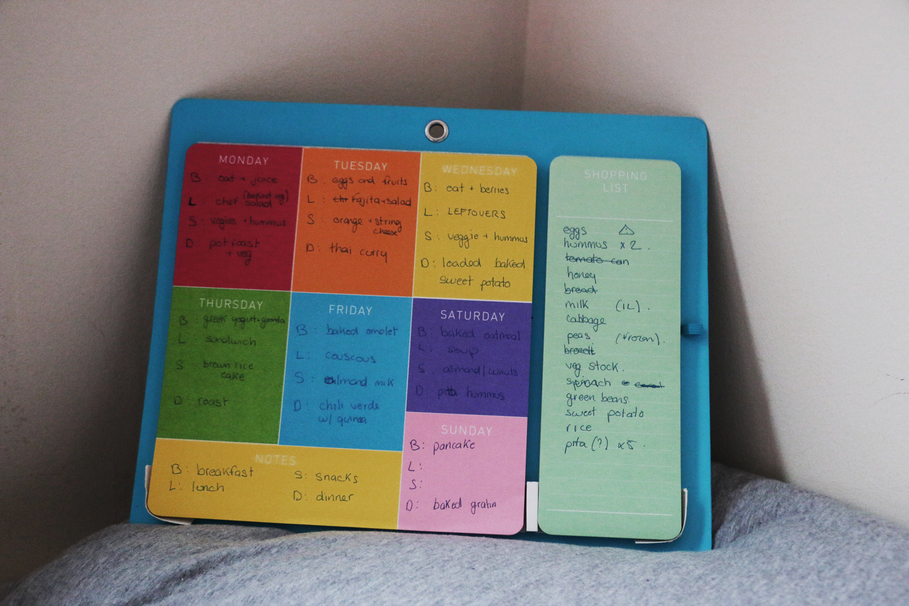 MONDAY
B: oat + juice
L: chef salad
S: veggies + hummus
D: pot roast
+ veg
TUESDAY
B: eggs and fruits
L: fajita + salad
S: orange + string
cheese
D: thai curry
WEDNESDAY
B: oat + berries
L: LEFTOVERS
S: veggie + hummus
D: loaded baked
sweet potato
THURSDAY
B greek yogurt + granola
L sandwich
S brown rice
cake
D: roast
FRIDAY
B: baked omelet
L: couscous
S: almond milk
D: chili verde
w/ quinoa
SATURDAY
B: baked oatmeal
L: soup
S: almond/
D: pitta hummus
SUNDAY
B: pancake
L:
S:
D: baked gratin
NOTES
B: breakfast
L: lunch
S: snacks
D: dinner
SHOPPING
LIST
eggs
hummus x 2.
tomato can
honey
bread
milk (1L)
cabbage
peas (frozen)
veg stock
spinach
green beans
sweet potato
rice
pita (?) x5.